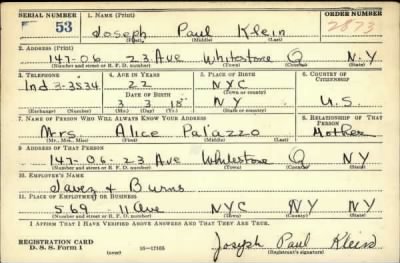 SERIAL NUMBER 1. NAME (Print) ORDER NUMBER
53 Joseph Paul Klein 2873
(First) (Middle) (Last)
2. ADDRESS (Print)
147-06 23 Ave Whitestone Q N.Y
(Number and street or R. F. D. number) (Town) (County) (State)
3. TELEPHONE 4. AGE IN YEARS 5. PLACE OF BIRTH 6. COUNTRY OF CITIZENSHIP
Ind 3-3534 22 NYC
DATE OF BIRTH (Town or county)
3 3 18 NY U.S.
(Exchange) (Number) (Mo.) (Day) (Yr.) (State or country)
7. NAME OF PERSON WHO WILL ALWAYS KNOW YOUR ADDRESS 8. RELATIONSHIP OF THAT PERSON
Mrs Alice Palazzo Mother
(Mr., Mrs., Miss) (First) (Middle) (Last)
9. ADDRESS OF THAT PERSON
147-06-23 Ave Whitestone Q NY
(Number and street or R. F. D. number) (Town) (County) (State)
10. EMPLOYER'S NAME
& Burns
11. PLACE OF EMPLOYMENT OR BUSINESS
569 11 Ave NYC NY NY
(Number and street or R. F. D. number) (Town) (County) (State)
I AFFIRM THAT I HAVE VERIFIED ABOVE ANSWERS AND THAT THEY ARE TRUE.
REGISTRATION CARD
D. S. S. Form 1 (over) 16-17105 Joseph Paul Klein
(Registrant's signature)